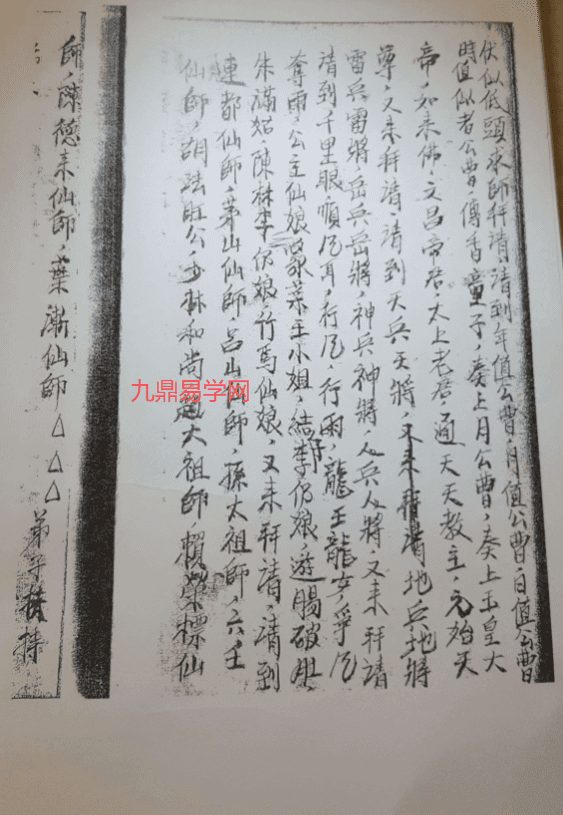 伏似低頭求師拜請請到年值公曹，月值公曹，日值公曹
時值似者公曹，傳香童子，奏上月公曹，奏上玉皇大
帝，如來佛，文昌帝君，太上老君，通天教主，元始天
尊，又来拜請，請到天兵天將，又来拜請地兵地將
雷兵雷將，岳兵岳將，神兵神將，人兵人將，又来拜請
請到千里眼順风耳，行风，行雨，龍王龍女，爭风
奪雨，公主仙娘，菜王小姐，結李仍娘，遊腸破肚
朱滿姑，陳林李仍娘竹馬仙娘，又来拜請，請到
連都仙師，茅山仙師，呂山仙師，孫大祖師，六壬
仙師，胡法旺公，少林和尚大祖師，賴榮標仙
師，陳德来仙師，葉仙師△△△ 弟子扶持
九鼎易学网